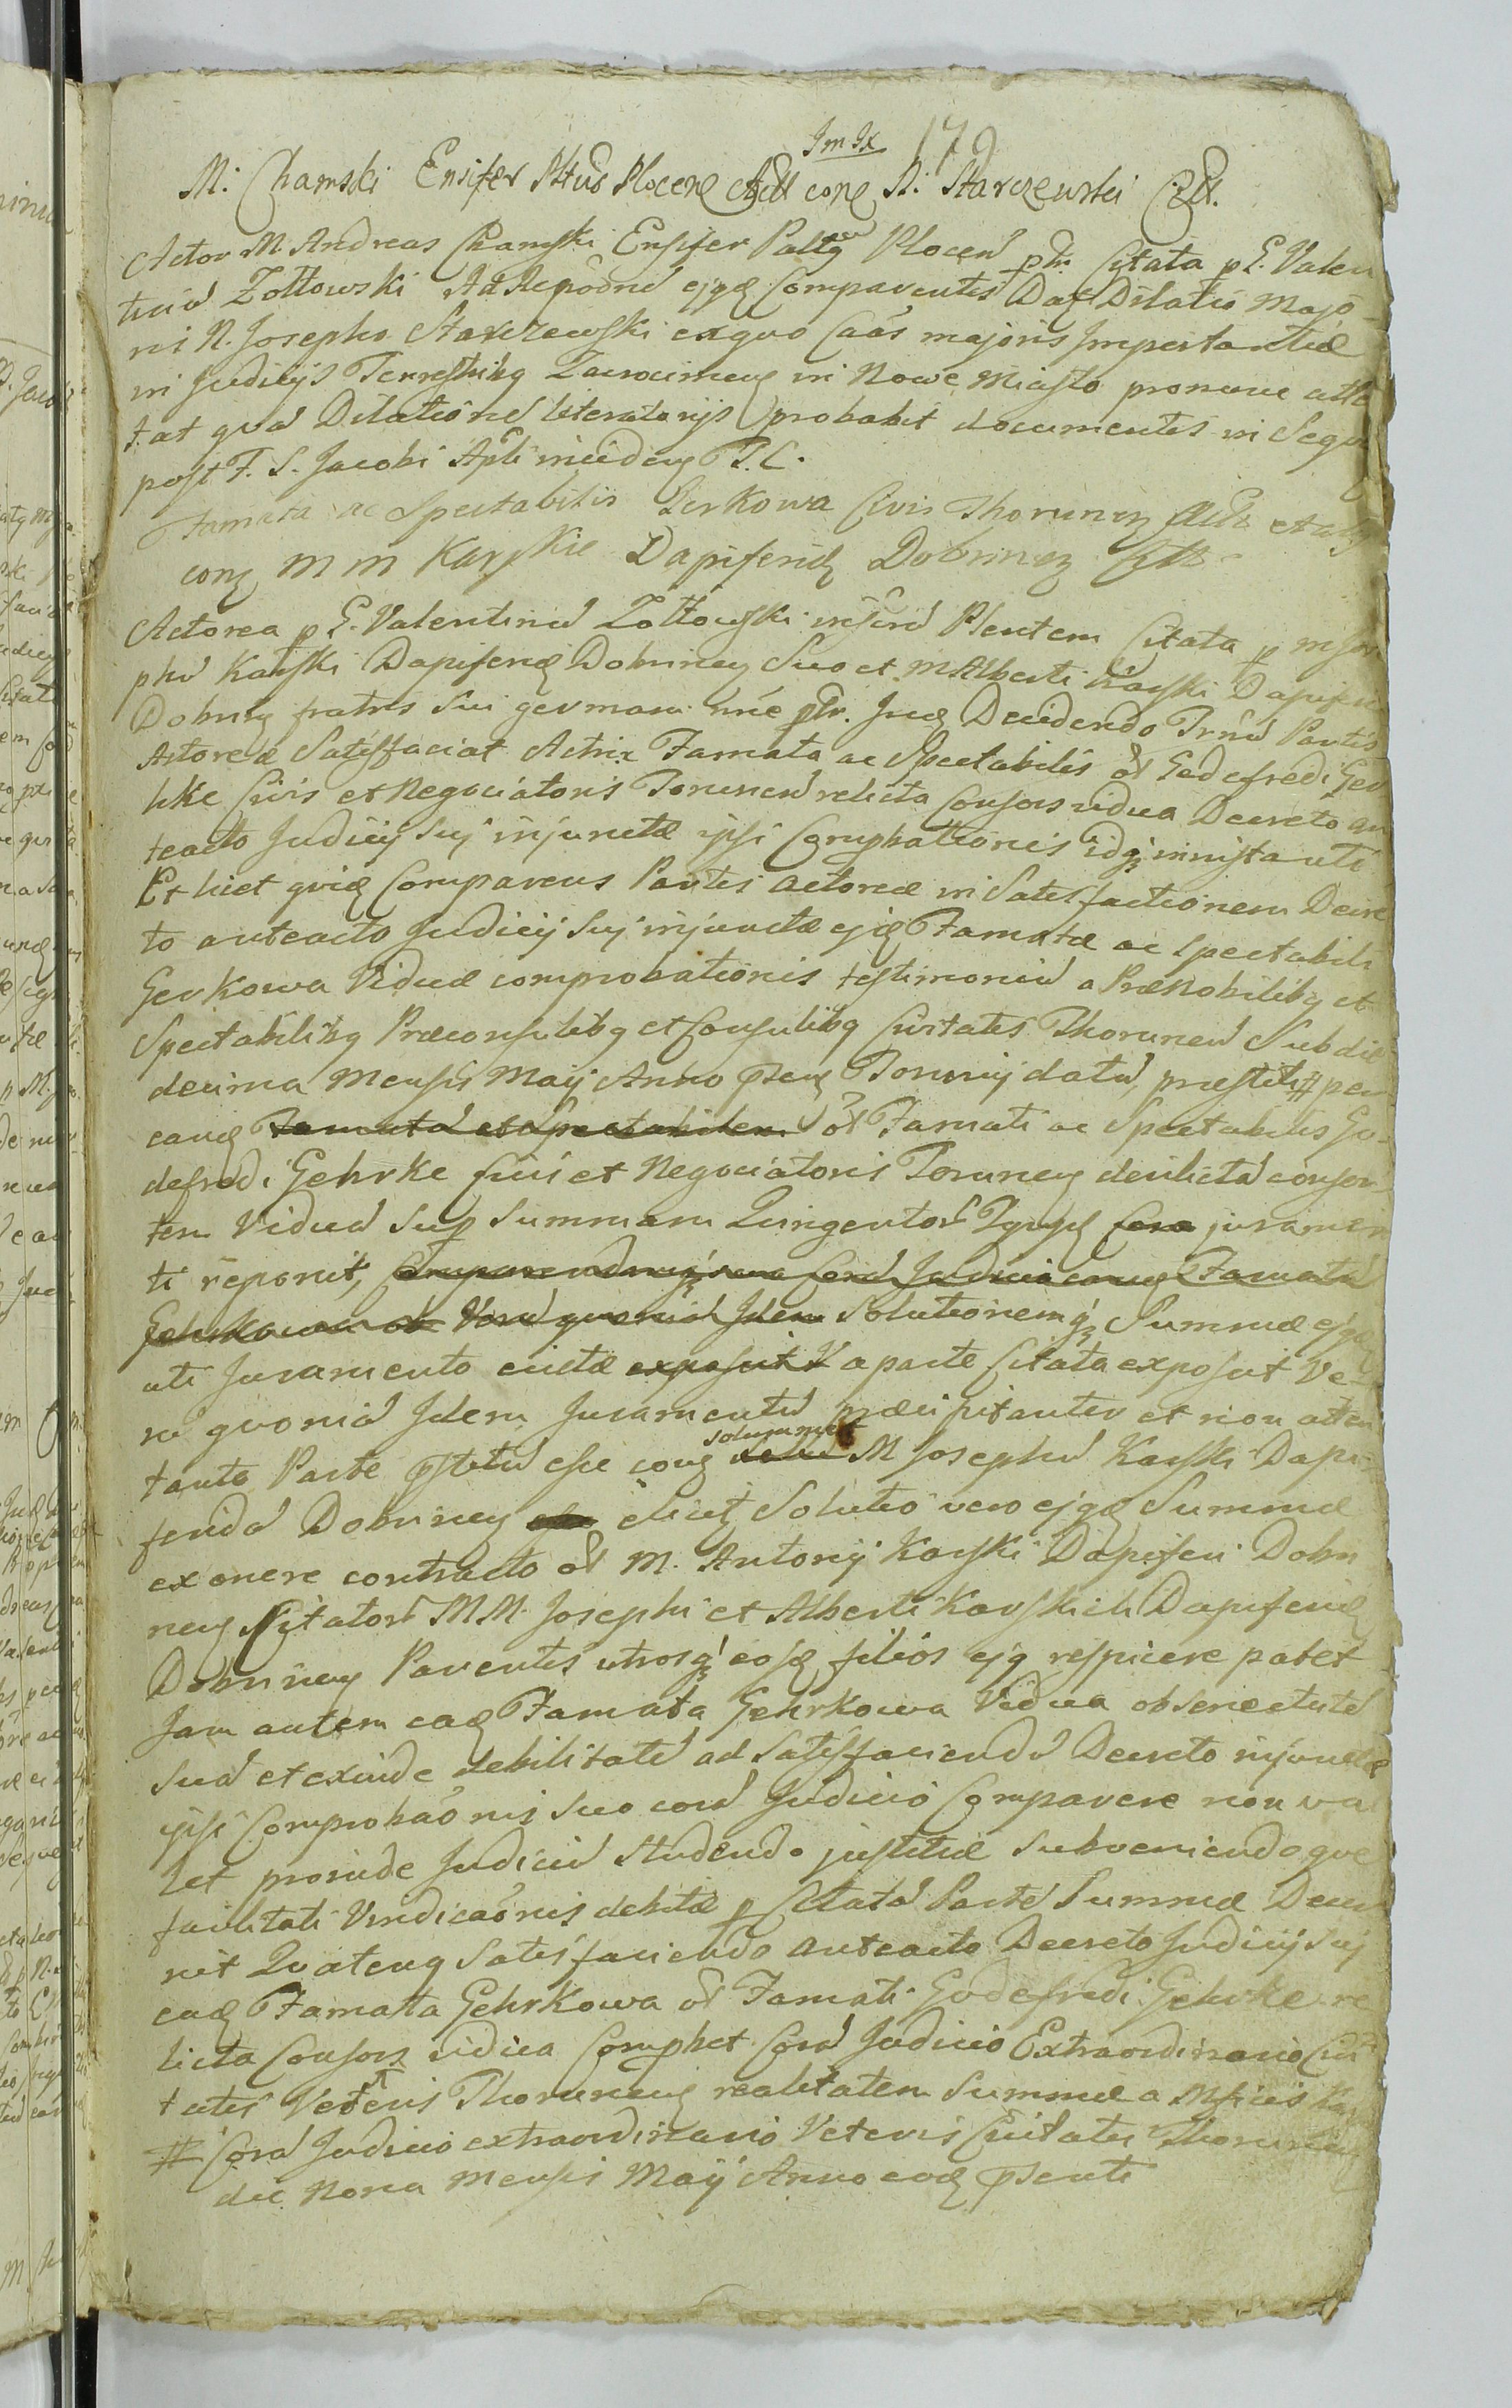 Im Ix 179
M. Chamski Ensifer Pltus Plocen Act con N. Starczewski Citt.
Actor M. Andreas Chamski Ensifer Palty Plocen ptr. Citata p G. Valen
tinu Zołtowski Ad Repodne ejqd Comparentis Dat Dilatio Majo
ri N. Josepho Starczewski exquo Caas majoris Importantiæ
in Judicijs Terrestribg Zawcrimen in Nowe Miasto pronunc atte
tat qua Dilatione literatorijs probabit documentis in Seqn
post F. S. Jacobi Apli inciden T. C.
Famata ac Spectabilis Gerkowa Civis Thorunen
con M M Karskie Dapiferid Dobrinen Citt
Actorea p G. Valentinu Zołtowski Plentem Citata p M Jose
phu Karski Dapiferid Dobrinen Suo et M Alberti Karski Dapiferi
Dobrin fratris Sui germani nne ptr. Jud Decidendo Trnu Partis
Actoreæ Satisfaciat Actrix Famata ac Spectabilis ol Godefredi Ger
hke Civis et Negociatoris Torunen relicta Consors vidua Decreto an
teacto Judicij Suj injunctæ ipsi Comprbationis idq innistanti
Et licet quid Comparens Partis actoreæ in Satisfactionem Decre
to anteacto Judicij Suj injunctæ ejd Famatæ ac Spectabili
Gerkowa Viduæ comprobationis testimoniu a Prænobilibg et
Spectabilibg Præconsulibg et Consulibg Civitatis Thorunen Sub die
decima Mensis Maij Anno psen Torunij datu, præstiti # per
eand Famata et Spectabilem ol Famati ac Spectabilis Go-
defredi Gehrke Civis et Negociatoris Torunen derelicta conser
tem Vidua Sup Summam Quingentor Tynff Cora juramen
ti reponit, Comparendumq Cora Judicio eand Famata
Gehrkowa ob Veru quonia Idem Solutionemq Summæ ejqd
uti Juramento evictæ exposcit V a parte Citata exposcit Ve-
ru quonia Idem Juramentu præcipitanter et non atten
tanto Parte pstitu esse con solummo M Josephu Karski Dapi-
ferida Dobrinen elicet Solutio vero ejqd Summæ
ex onere contracto ol M. Antonij Karski Dapiferi Dobri
nen Citator M M Josephi et Alberti Karskich Dapiferid
Dobrinen Parentis utrosq eosd filios ejq respicere patet
Jam autem ead Famata Gehrkowa Vidua ob senectute
Sua et exinde debilitate ad Satisfaciendu Decreto injunctæ
ipsi Comprobaonis suo cora Judicio Comparere non va
let proinde Judiciu Studendo justitiæ Subveniendoque
facilitati Vindicaonis debitæ p Citata Parte Summæ Decer
nit Quateng Satisfaciendo anteacto Decreto Judicij Suj
ead Famata Gehrkowa ol Famati Godefredi Gehrke re
licta Consors vidua Comprbet Cora Judicio Extraordinario Civi
tatis Veteris Thorunen realitatem Summæ a Mficis Kar
# Cora Judicio extraordinario Veteris Civitatis Thorunen
die Nona Mensis Maij Anno eod psenti